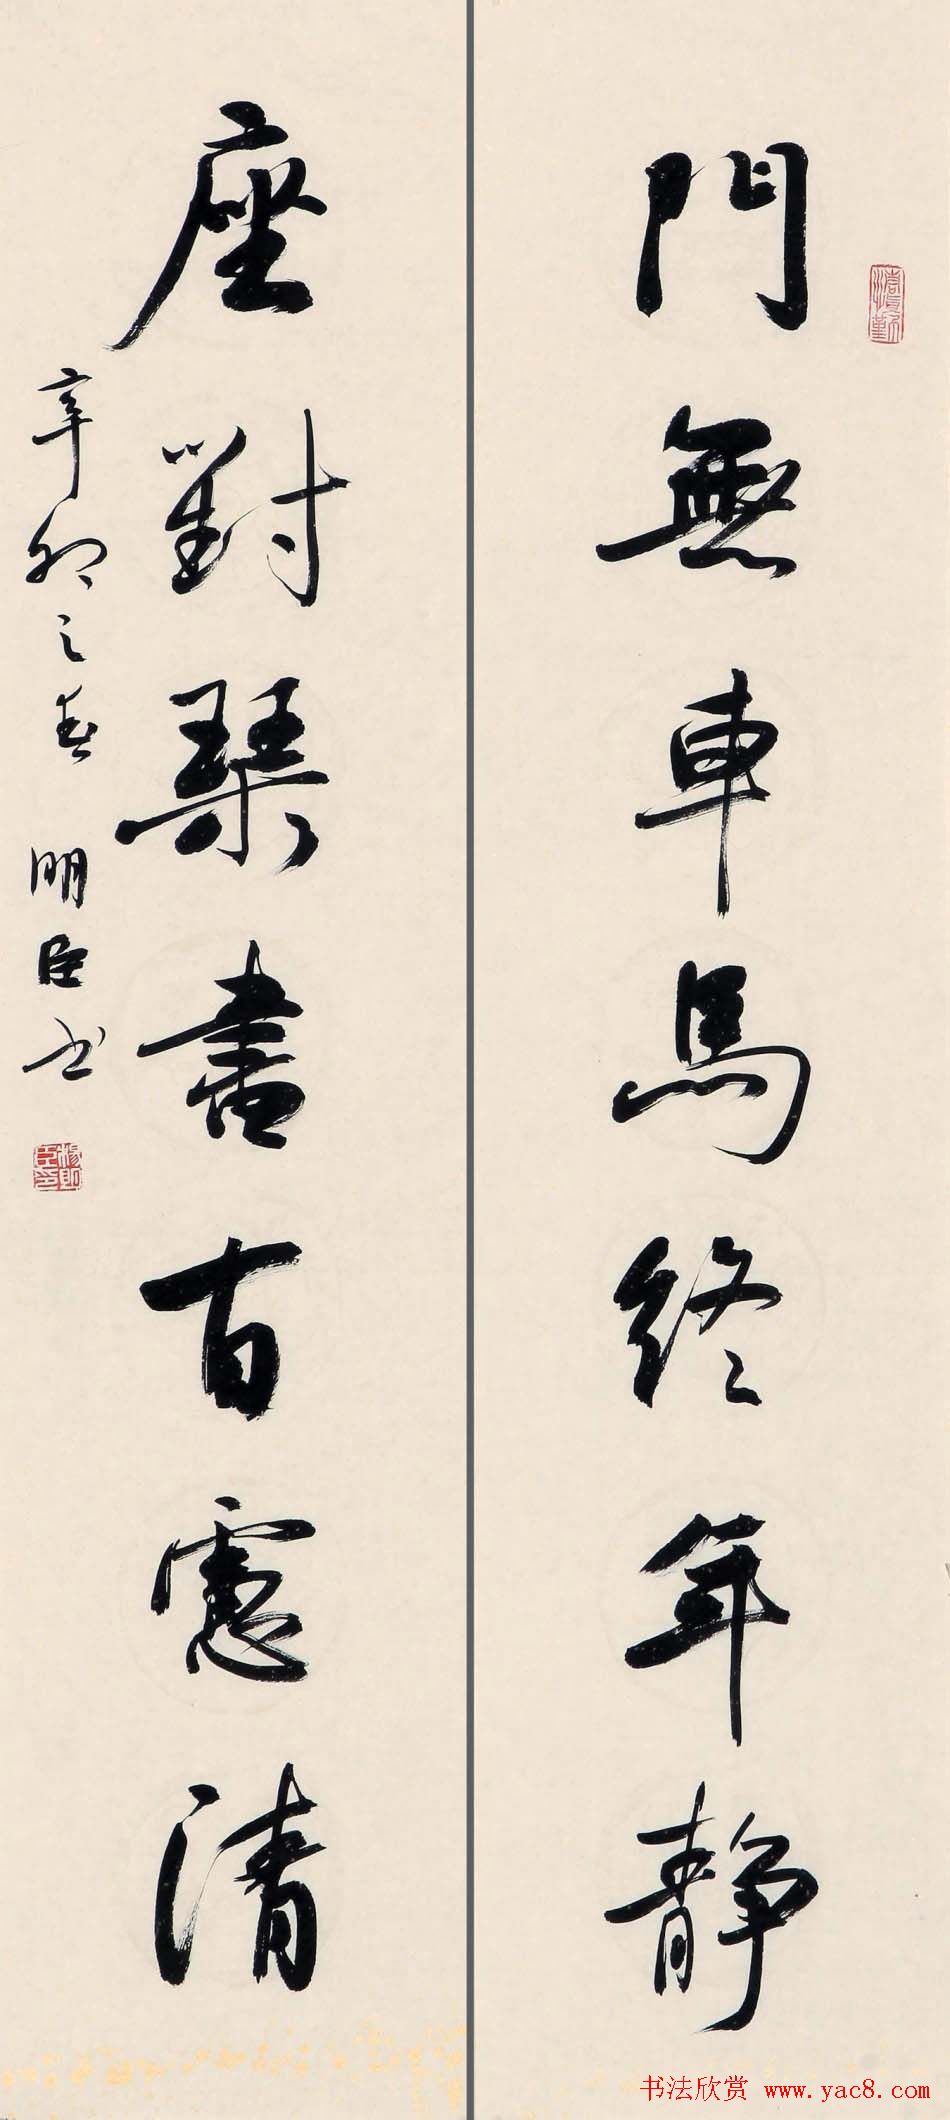 門無車馬終年靜
座對琴書百慮清
辛卯之春 明臣书
楊明臣印
书法欣赏 www.yac8.com